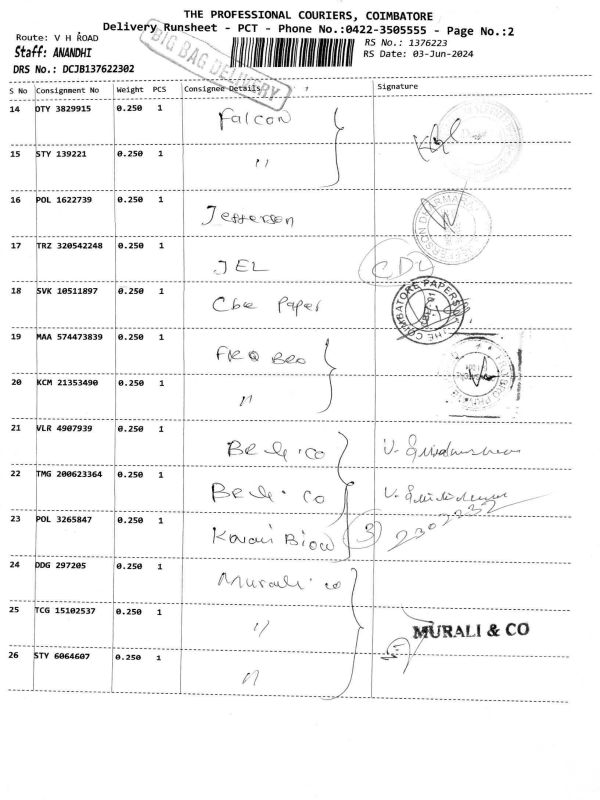 THE PROFESSIONAL COURIERS, COIMBATORE
Delivery Runsheet - PCT - Phone No.:0422-3505555 - Page No.:2
Route: V H ROAD
RS No.: 1376223
Staff: ANANDHI
RS Date: 03-Jun-2024
DRS No.: DCJB137622302
BIG BAG DELIVERY
S No Consignment No Weight PCS Consignee Details Signature
14 OTY 3829915 0.250 1 Falcon
15 STY 139221 0.250 1 "
16 POL 1622739 0.250 1 Jefferson
17 TRZ 320542248 0.250 1 JEL
18 SVK 10511897 0.250 1 Cbe Paper
THE COIMBATORE PAPERS
19 MAA 574473839 0.250 1
20 KCM 21353490 0.250 1 "
21 VLR 4907939 0.250 1
22 TMG 200623364 0.250 1
23 POL 3265847 0.250 1 3 2302232
24 DDG 297205 0.250 1 Murali co
25 TCG 15102537 0.250 1 " MURALI & CO
26 STY 6064607 0.250 1 "